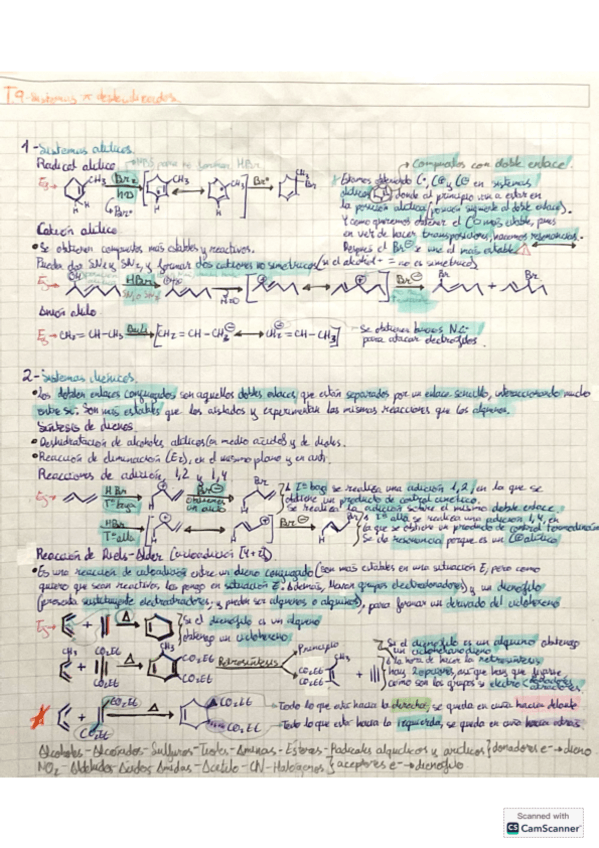 T9-Sistemas π deslocalizados.
1-Sistemas alílicos.
Radical alílico
Compuestos con doble enlace.
Eg→ CH3 Br2 CH3 CH3 Br• CH3 Br
hν
H H
→Br2•
Estamos obteniendo C•, C⊕, y C⊖ en sistemas
alílicos, donde al principio van a estar en
la posición alílica (posición siguiente al doble enlace).
Y como queremos obtener el C más estable, pues
en vez de hacer transposiciones, hacemos resonancias.
Después el Br⊖ se une al más estable
Catión alílico
• Se obtienen compuestos más estables y reactivos.
Pueden dar SN1 y SN2, y formar dos cationes no simétricos (si el alcohol = no es simétrico)
Eg→ OH HBr Br⊖ Br Br
Anión alilo
Eg→ CH2=CH-CH3 BuLi [CH2=CH-CH2⊖ ↔ ⊖CH2-CH=CH2]
-Se obtienen buenos Nu:⊖
para atacar electrófilos.
2-Sistemas diénicos.
• Los dobles enlaces conjugados son aquellos dobles enlaces que están separados por un enlace sencillo, interaccionando mucho
entre sí. Son más estables que los aislados y experimentan las mismas reacciones que los alquenos.
Síntesis de dienos.
• Deshidratación de alcoholes alílicos (en medio ácido) y de dioles.
• Reacción de eliminación (E2), en el mismo plano y en anti.
Reacciones de adición, 1,2 y 1,4
Eg→ HBr Br⊖ Br
T=baja
A T=baja se realiza una adición 1,2, en la que se
obtiene un producto de control cinético.
Se realiza la adición sobre el mismo doble enlace.
HBr Br⊖ Br
T=alta
A T=alta se realiza una adición 1,4, en
la que se obtiene un producto de control termodinámico
Se da resonancia porque es un C⊕ alílico
Reacción de Diels-Alder (cicloadición [4+2])
• Es una reacción de cicloadición entre un dieno conjugado (son más estables en una situación E, pero como
quiero que sean reactivos, los pongo en situación Z. Además, llevan grupos electrodonadores) y un dienófilo
(presenta sustituyentes electroatractores, y pueden ser alquenos o alquinos), para formar un derivado del ciclohexeno.
Eg→ + Δ
Si el dienófilo es un alqueno
obtengo un ciclohexeno
CH3 CO2Et CH3 CO2Et
+ Δ Retrosíntesis Principio
CO2Et CO2Et CO2Et CH3 +
CO2Et
Si el dienófilo es un alquino obtengo
un ciclohexadieno
A la hora de hacer la retrosíntesis
hay 2 opciones, así que hay que fijarse
como son los grupos si electrodonadores
atractores
+ CO2Et Δ CO2Et
CO2Et CO2Et
-Todo lo que esté hacia la derecha, se queda en cuña hacia delante
-Todo lo que esté hacia la izquierda, se queda en cuña hacia atrás.
Alcoholes-Alcóxidos-Sulfuros-Tioles-Aminas-Ésteres-Radicales alquílicos y arílicos} donadores e-→dieno
NO2-Aldehídos-Ácidos-Amidas-Acetilo-CN-Halógenos} aceptores e-→dienófilo
Scanned with
CS CamScanner